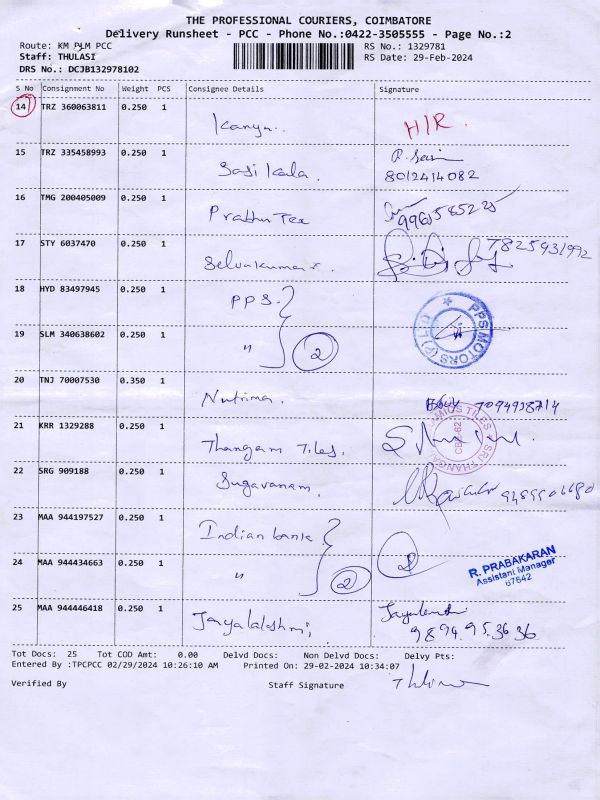 THE PROFESSIONAL COURIERS, COIMBATORE
Delivery Runsheet - PCC - Phone No.:0422-3505555 - Page No.:2
Route: KM PLM PCC RS No.: 1329781
Staff: THULASI RS Date: 29-Feb-2024
DRS No.: DCJB132978102
S No Consignment No Weight PCS Consignee Details Signature
14 TRZ 360063811 0.250 1 Kanya.. H/R.
15 TRZ 335458993 0.250 1 Sasi Kala. 8012414082
16 TMG 200405009 0.250 1 Prabhu Tex
17 STY 6037470 0.250 1 Selvakumar. 7825931992
18 HYD 83497945 0.250 1 PPS.
PPS MOTORS (P) LTD
19 SLM 340638602 0.250 1 " 2
20 TNJ 70007530 0.350 1 Nutrima. 7094938714
21 KRR 1329288 0.250 1 Thangam Tiles.
22 SRG 909188 0.250 1 Sugavanam.
23 MAA 944197527 0.250 1 Indian bank
24 MAA 944434663 0.250 1 " 2
R. PRABAKARAN
Assistant Manager
67642
25 MAA 944446418 0.250 1 Jayalakshmi, 9894953636
Tot Docs: 25 Tot COD Amt: 0.00 Delvd Docs: Non Delvd Docs: Delvy Pts:
Entered By :TPCPCC 02/29/2024 10:26:10 AM Printed On: 29-02-2024 10:34:07
Verified By Staff Signature